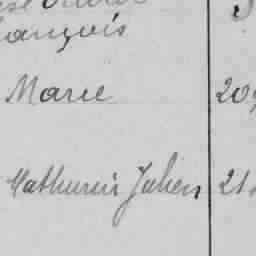 ançois
Marie 20
Mathurin Julien 21